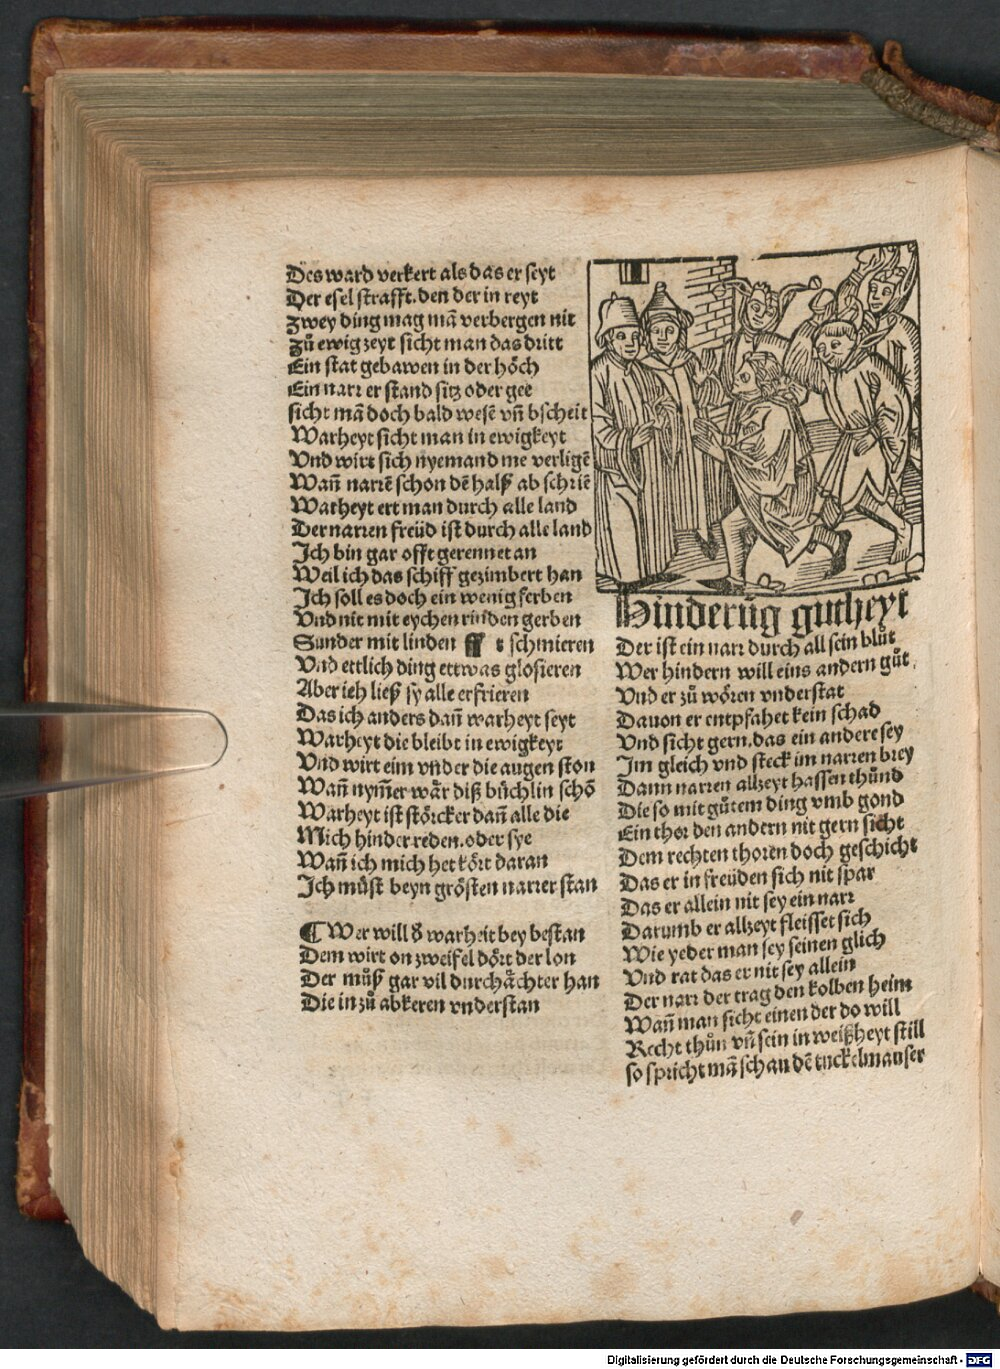 Des ward verkert als das er seyt
Der esel strafft. den der in reyt
Zwey ding mag mã verbergen nit
Zů ewig zeyt sicht man das dritt
Ein stat gebawen in der höch
Ein narr er stand sitz oder gee
sicht mã doch bald wesẽ vñ bscheit
Warheyt sicht man in ewigkeyt
Vnd wirt sich nyemand me verligẽ
Wañ narrẽ schon dẽ halß ab schriẽ
Warheyt ert man durch alle land
Der narren freüd ist durch alle land
Ich bin gar offt gerennet an
Weil ich das schiff gezimbert han
Ich soll es doch ein wenig ferben
Vnd nit mit eychen rinden gerben
Sunder mit linden schmieren
Vnd ettlich ding ettwas glosieren
Aber ich ließ sy alle erfrieren
Das ich anders dañ warheyt seyt
Warheyt die bleibt in ewigkeyt
Vnd wirt eim vnder die augen ston
Wañ nym̃er wår diß büchlin schõ
Warheyt ist störcker dañ alle die
Mich hinder reden. oder sye
Wañ ich mich het kört daran
Ich müst beyn grösten narrer stan
¶ Wer will d̕ warheit bey bestan
Dem wirt on zweifel dört der lon
Der můß gar vil durchåchter han
Die in zů abkeren vnderstan
Hinderũg gutheyt
Der ist ein narr durch all sein blůt
Wer hindern will eins andern gůt
Vnd er zů wören vnderstat
Dauon er entpfahet kein schad
Vnd sicht gern. das ein andere sey
Im gleich vnd steck im narren brey
Dann narren allzeyt hassen thůnd
Die so mit gůtem ding vmb gond
Ein thor den andern nit gern sicht
Dem rechten thoren doch geschicht
Das er in freüden sich nit spar
Das er allein nit sey ein narr
Darumb er allzeyt fleisset sich
Wie yeder man sey seinen glich
Vnd rat das er nit sey allein
Der narr der trag den kolben heim
Wañ man sicht einen der do will
Recht thůn vñ sein in weißheyt still
so spricht mã schau dẽ tuckelmauser
Digitalisierung gefördert durch die Deutsche Forschungsgemeinschaft - DFG